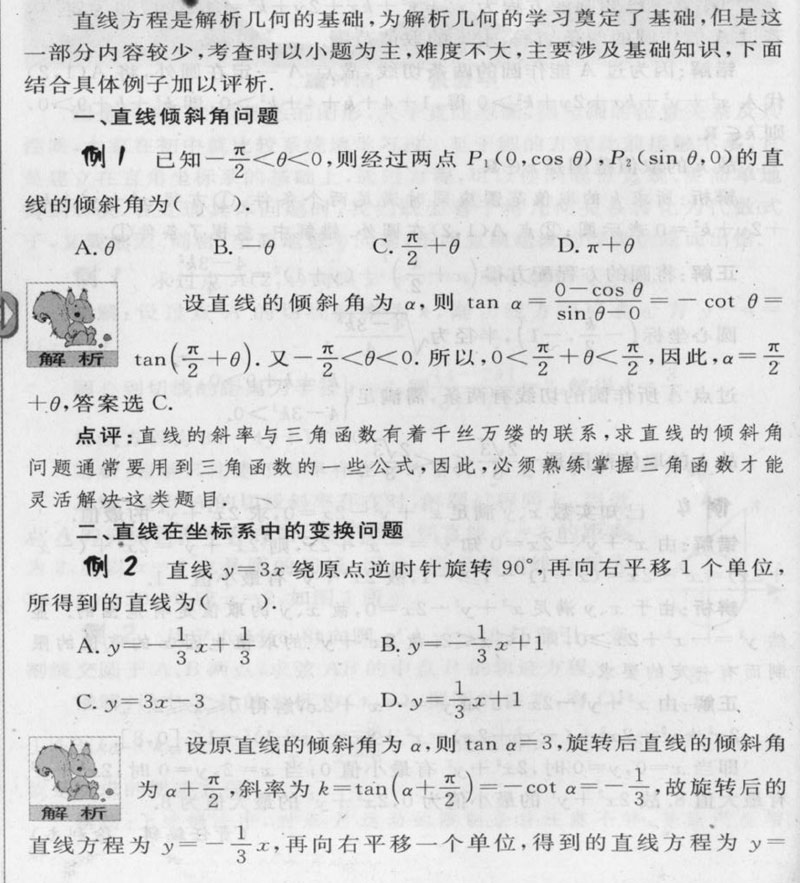 直线方程是解析几何的基础,为解析几何的学习奠定了基础,但是这
一部分内容较少,考查时以小题为主,难度不大,主要涉及基础知识,下面
结合具体例子加以评析.
一、直线倾斜角问题
例1 已知-π/2<θ<0,则经过两点 P₁(0,cos θ),P₂(sin θ,0)的直
线的倾斜角为( ).
A. θ B. -θ C. π/2+θ D. π+θ
设直线的倾斜角为 α,则 tan α=(0-cos θ)/(sin θ-0)=-cot θ=
解 析 tan(π/2+θ). 又-π/2<θ<0. 所以,0<π/2+θ<π/2,因此,α=π/2
+θ,答案选 C.
点评:直线的斜率与三角函数有着千丝万缕的联系,求直线的倾斜角
问题通常要用到三角函数的一些公式,因此,必须熟练掌握三角函数才能
灵活解决这类题目.
二、直线在坐标系中的变换问题
例2 直线 y=3x 绕原点逆时针旋转 90°,再向右平移 1 个单位,
所得到的直线为( ).
A. y=-1/3x+1/3 B. y=-1/3x+1
C. y=3x-3 D. y=1/3x+1
设原直线的倾斜角为 α,则 tan α=3,旋转后直线的倾斜角
解 析 为 α+π/2,斜率为 k=tan(α+π/2)=-cot α=-1/3,故旋转后的
直线方程为 y=-1/3x,再向右平移一个单位,得到的直线方程为 y=